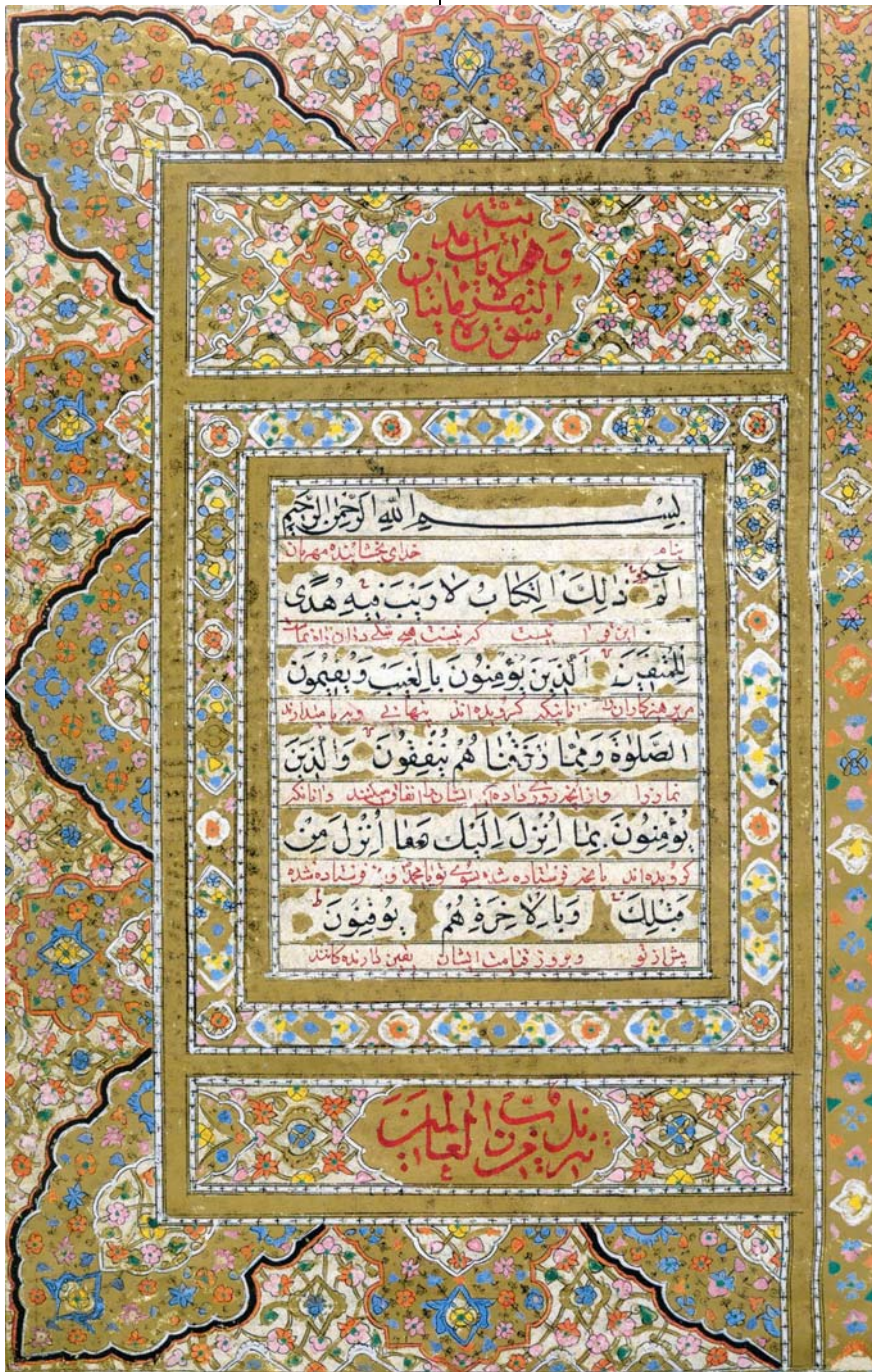 سورة
البقرة مايتان
ايات مد
نية
بِسْمِ اللّٰهِ الرَّحْمٰنِ الرَّحِيمِ
بنام خدای بخشاینده مهربان
الم ذٰلِكَ الْكِتَابُ لَا رَيْبَ فِيهِ هُدًى
این نیست هیچ شکی در آن راه نماست
لِلْمُتَّقِينَ الَّذِينَ يُؤْمِنُونَ بِالْغَيْبِ وَيُقِيمُونَ
مر پرهیزکاران را آنانیکه کرویده اند بنهانی و برپا میدارند
الصَّلٰوةَ وَمِمَّا رَزَقْنَا هُمْ يُنْفِقُونَ وَالَّذِينَ
نماز را و از آنچه روزی داده ایم ایشان را انفاق میکنند و آنانکه
يُؤْمِنُونَ بِمَا اُنْزِلَ اِلَيْكَ وَمَا اُنْزِلَ مِنْ
کرویده اند بآنچه فرستاده شد بسوی تو یا محمد فرستاده شده
قَبْلِكَ وَبِالْاٰخِرَةِ هُمْ يُوقِنُونَ
پیش از تو و بروز قیامت ایشان یقین دارنده کانند
تنزيل من رب العالمين